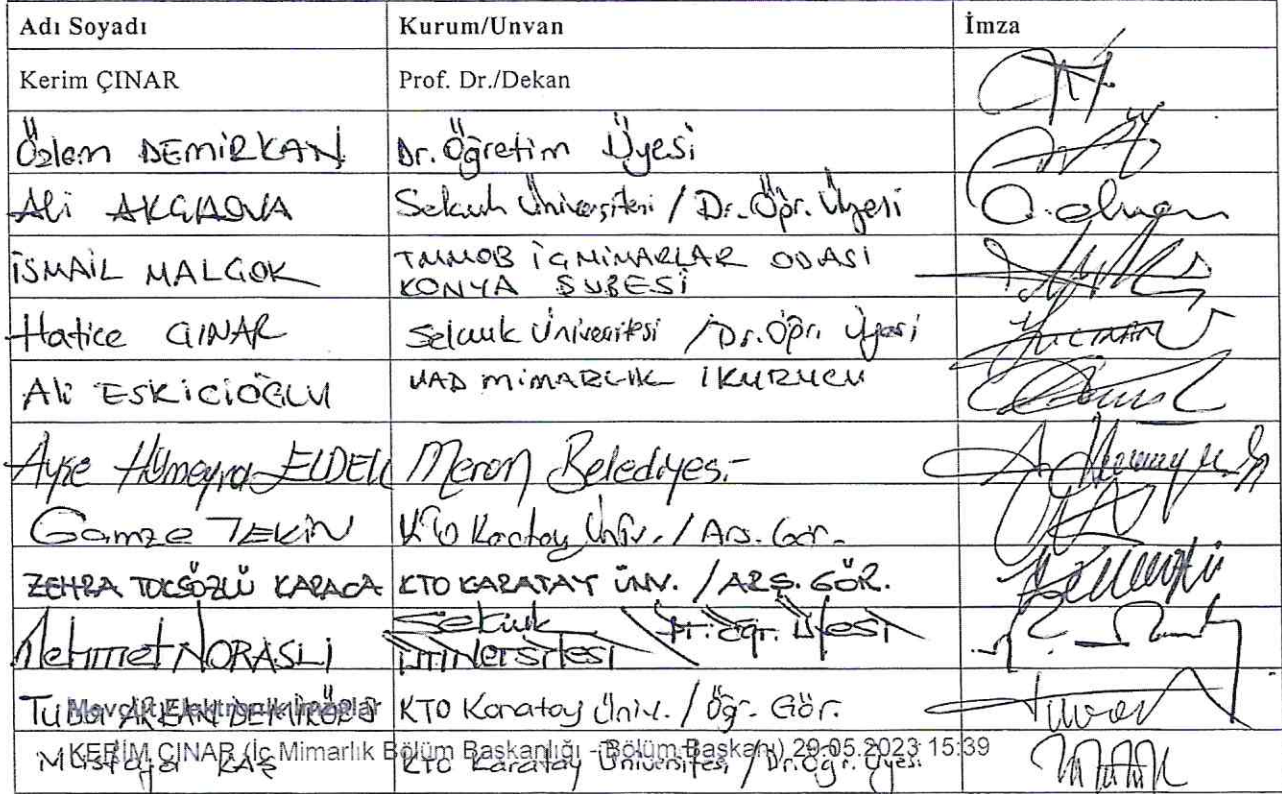 Adı Soyadı Kurum/Unvan İmza
Kerim ÇINAR Prof. Dr./Dekan
Özlem DEMİRKAN Dr. Öğretim Üyesi
Ali Selçuk Üniversitesi / Dr. Öğr. Üyesi
İSMAİL MALGOK TMMOB İÇMİMARLAR ODASI
KONYA ŞUBESİ
Hatice ÇINAR Selçuk Üniversitesi / Dr. Öğr. Üyesi
Ali ESKİCİOĞLU UAD MİMARLIK / KURUCU
Ayşe Hümeyra Meram Belediyesi
Gamze TEKİN KTO Karatay Üniv. / Arş. Gör.
ZEHRA TOKSÖZLÜ KARACA KTO KARATAY ÜNV. / ARŞ. GÖR.
Mehmet NORASLI Selçuk Üniversitesi Dr. Öğr. Üyesi
Tuba KTO Karatay Üniv. / Öğr. Gör.
Mevcut Elektronik İmzalar
Mustafa KTO Karatay Üniversitesi / Dr. Öğr. Üyesi
KERİM ÇINAR (İç Mimarlık Bölüm Başkanlığı - Bölüm Başkanı) 29.05.2023 15:39